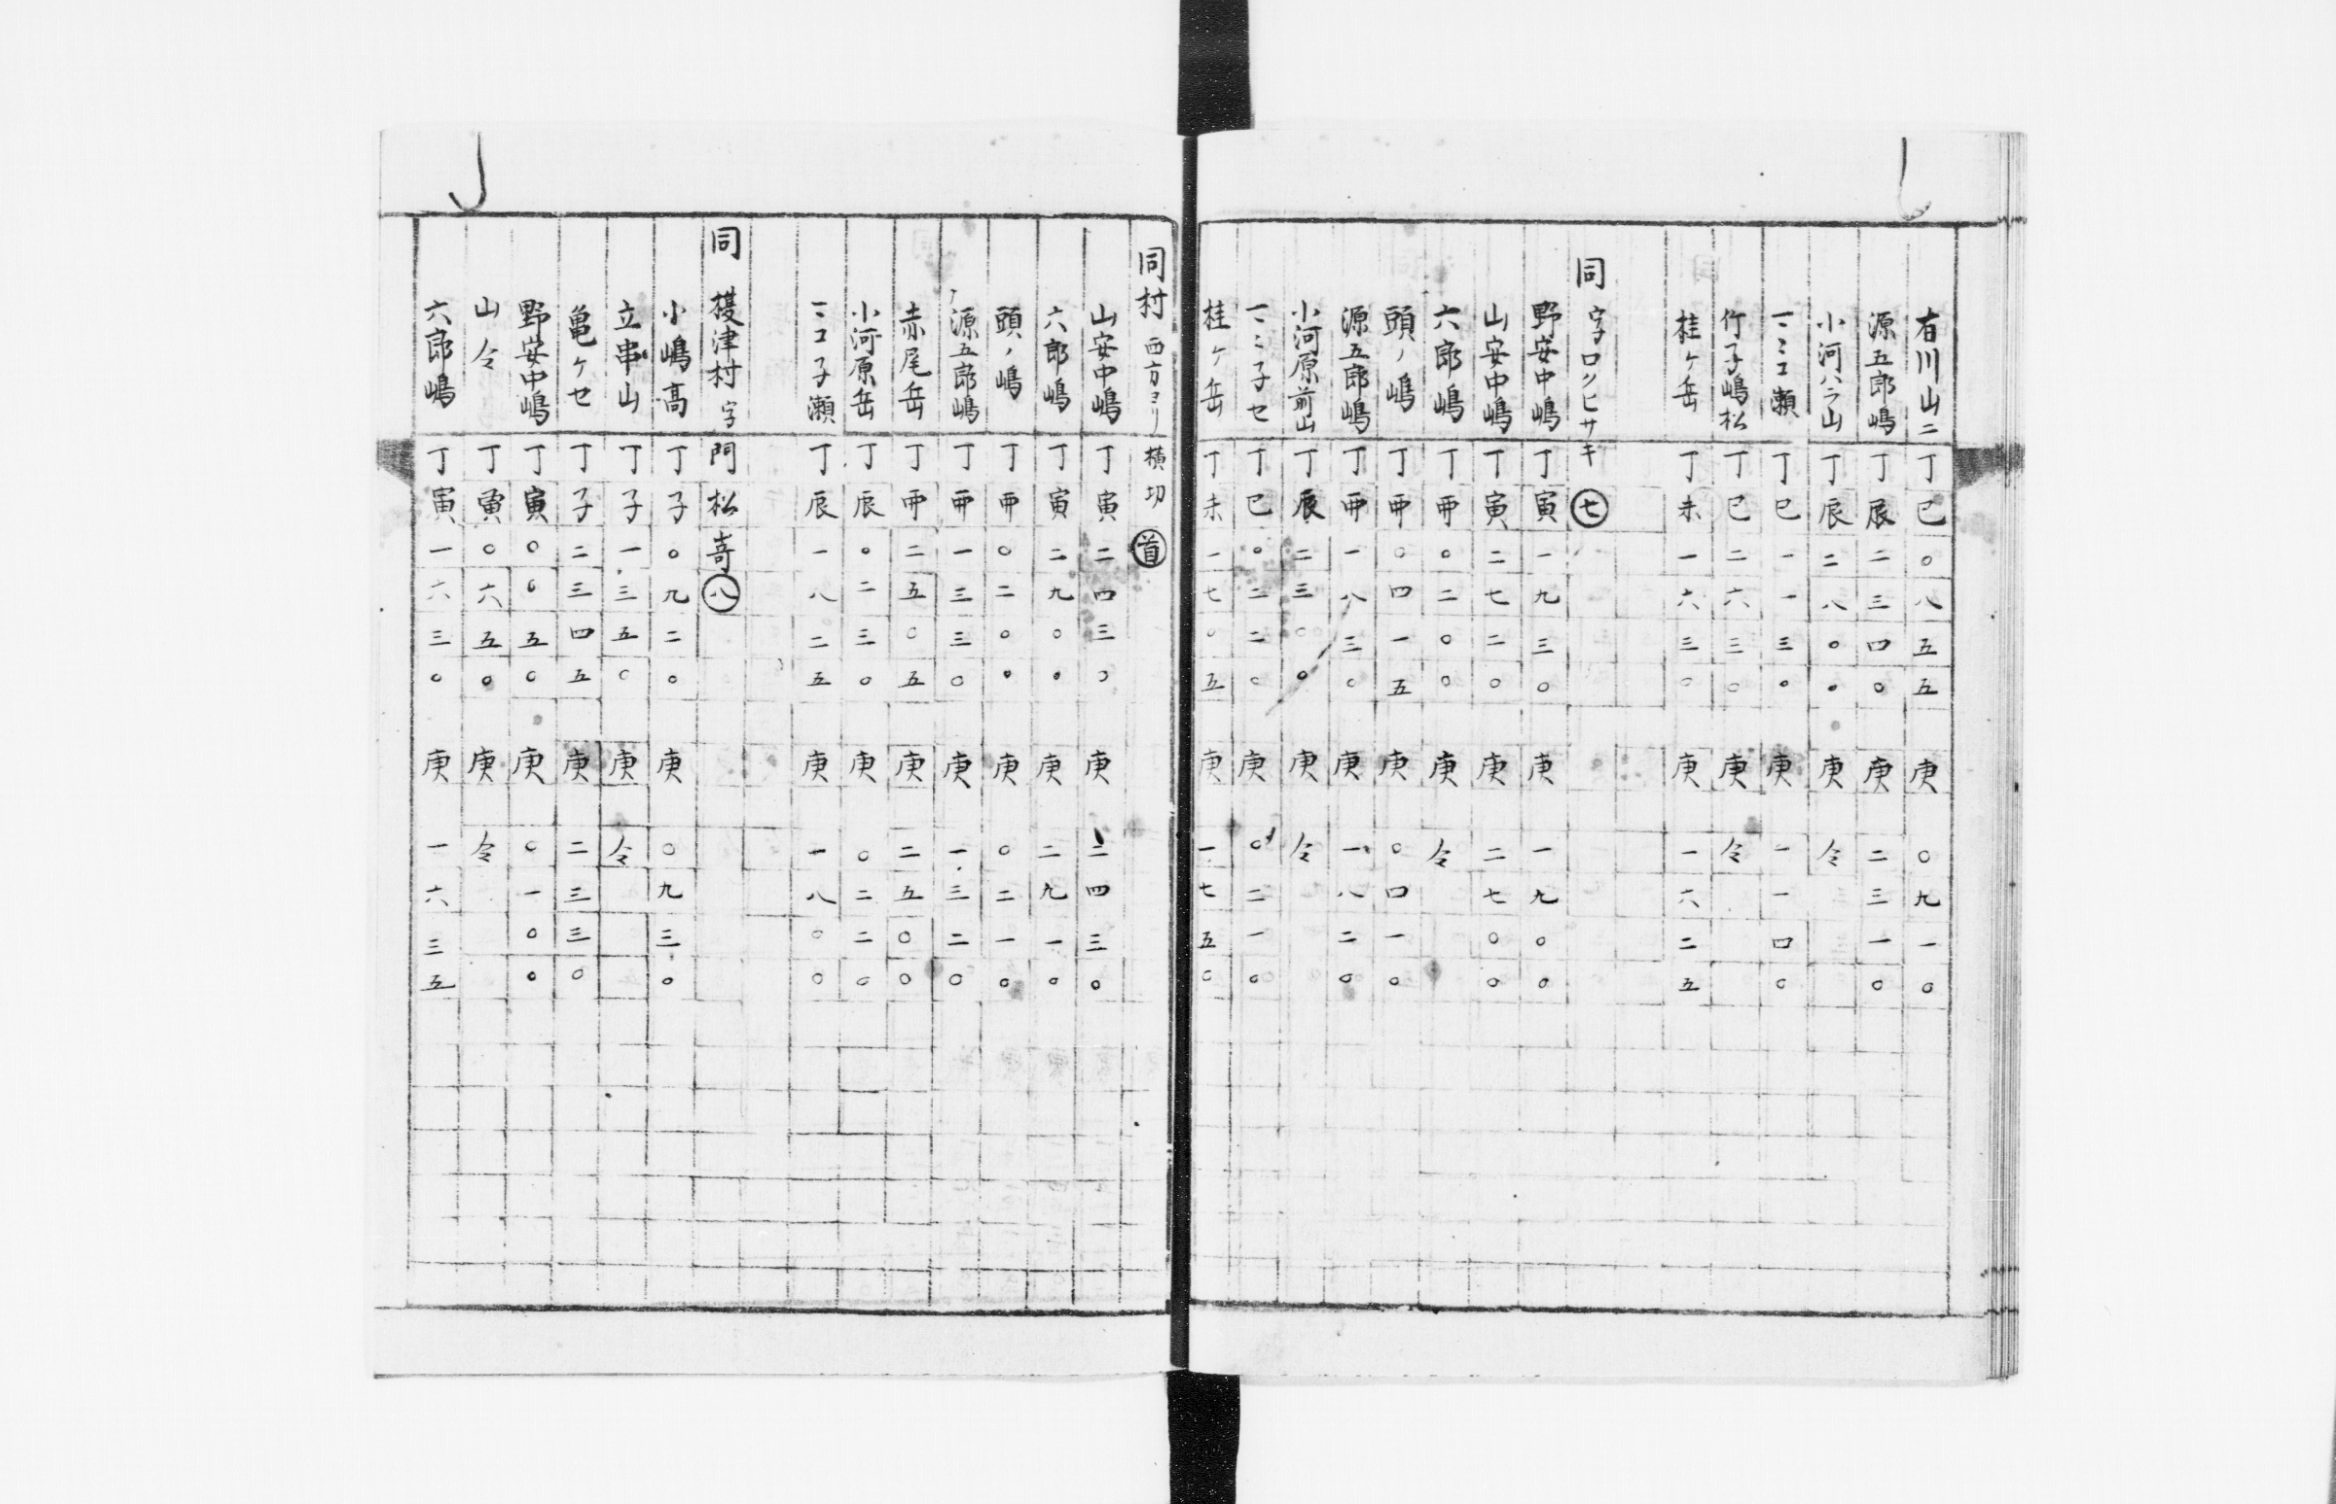 有川山二 丁巳〇八五五 庚〇九一〇
源五郎嶋 丁辰二三四〇 庚二三一〇
小河ハラ山 丁辰二八〇〇 庚仝
ミミコ瀬 丁巳一一三〇 庚一一四〇
竹子嶋松 丁巳二六三〇 庚仝
桂ケ岳 丁未一六三〇 庚一六二五
同 字口ノヒサキ 七
野安中嶋 丁寅一九三〇 庚一九〇〇
山安中嶋 丁寅二七二〇 庚二七〇〇
六郎嶋 丁丑〇二〇〇 庚仝
頭ノ嶋 丁丑〇四一五 庚〇四一〇
源五郎嶋 丁丑一八三〇 庚一八二〇
小河原前山 丁辰二三〇〇 庚仝
ミミ子セ 丁巳〇二二〇 庚〇二一〇
桂ケ岳 丁未一七〇五 庚一七五〇
同村 西方ヨリ横切 首
山安中嶋 丁寅二四三〇 庚二四三〇
六郎嶋 丁寅二九〇〇 庚二九一〇
頭ノ嶋 丁丑〇二〇〇 庚〇二一〇
源五郎嶋 丁丑一三三〇 庚一三二〇
赤尾岳 丁丑二五〇五 庚二五〇〇
小河原岳 丁辰〇二三〇 庚〇二二〇
ミコ子瀬 丁辰一八二五 庚一八〇〇
同 榎津村 字門松嵜 八
小嶋高 丁子〇九二〇 庚〇九三〇
立串山 丁子一三五〇 庚仝
亀ケセ 丁子二三四五 庚二三三〇
野安中嶋 丁寅〇〇五〇 庚〇一〇〇
山仝 丁寅〇六五〇 庚仝
六郎嶋 丁寅一六三〇 庚一六三五